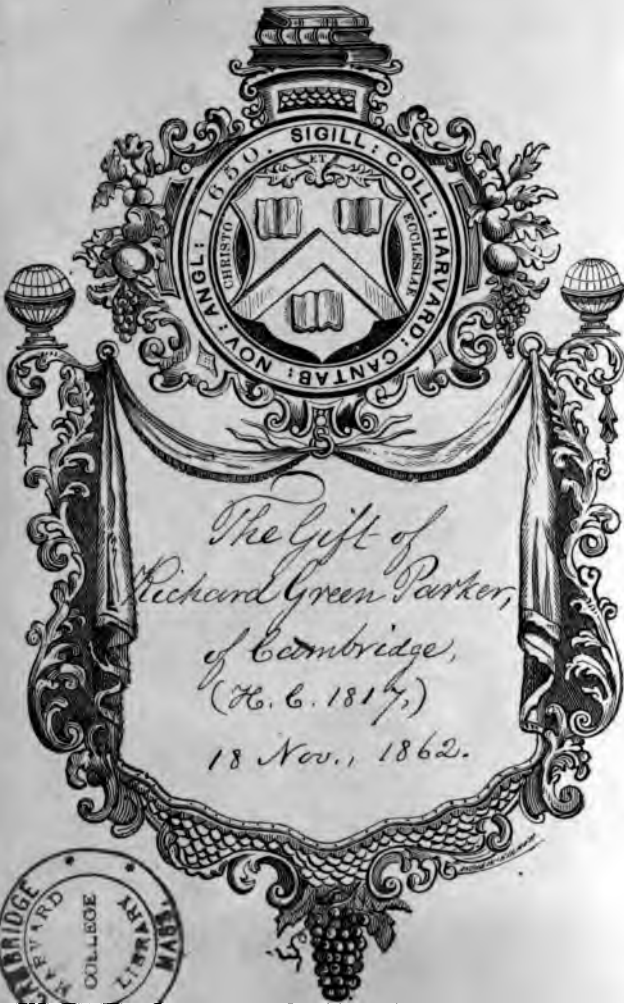 SIGILL: COLL: HARVARD: CANTAB: NOV: ANGL: 1650.
ET
CHRISTO
ECCLESIAE
The Gift of
Richard Green Parker,
of Cambridge,
(H. C. 1817,)
18 Nov., 1862.
HARVARD
COLLEGE
LIBRARY
MASS.